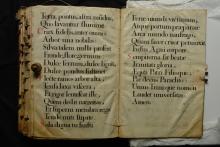 Terra, pontus, astra, mundus,
Quo lavantur flumine
Crux fidelis, inter omnes
Arbor una nobilis:
Silva talem nulla profert
Fronde, flore, germine:
Dulce ferrum, dulce lignum,
Dulce pondus sustinet
Flecte ramos arbor alta,
Tensa laxa viscera,
Et rigor lentescat ille,
Quem dedit nativitas:
Et superni membra regis
Tende miti stipite
Sola digna tu fuisti
Ferre mundi victimam,
Atque portum præparare
Arca mundo naufrago,
Quem sacer cruor perunxit
Fusus Agni corpore
Sempiterna sit beatæ
Trinitati gloria,
Æqua Patri, Filioque,
Par decus Paraclito:
Unius Trinique nomen
Laudet universitas
Amen.